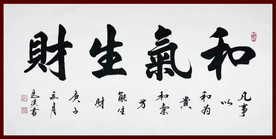 和氣生財
凡事
以
和為
貴
和氣
方
能生
財
庚子
五月